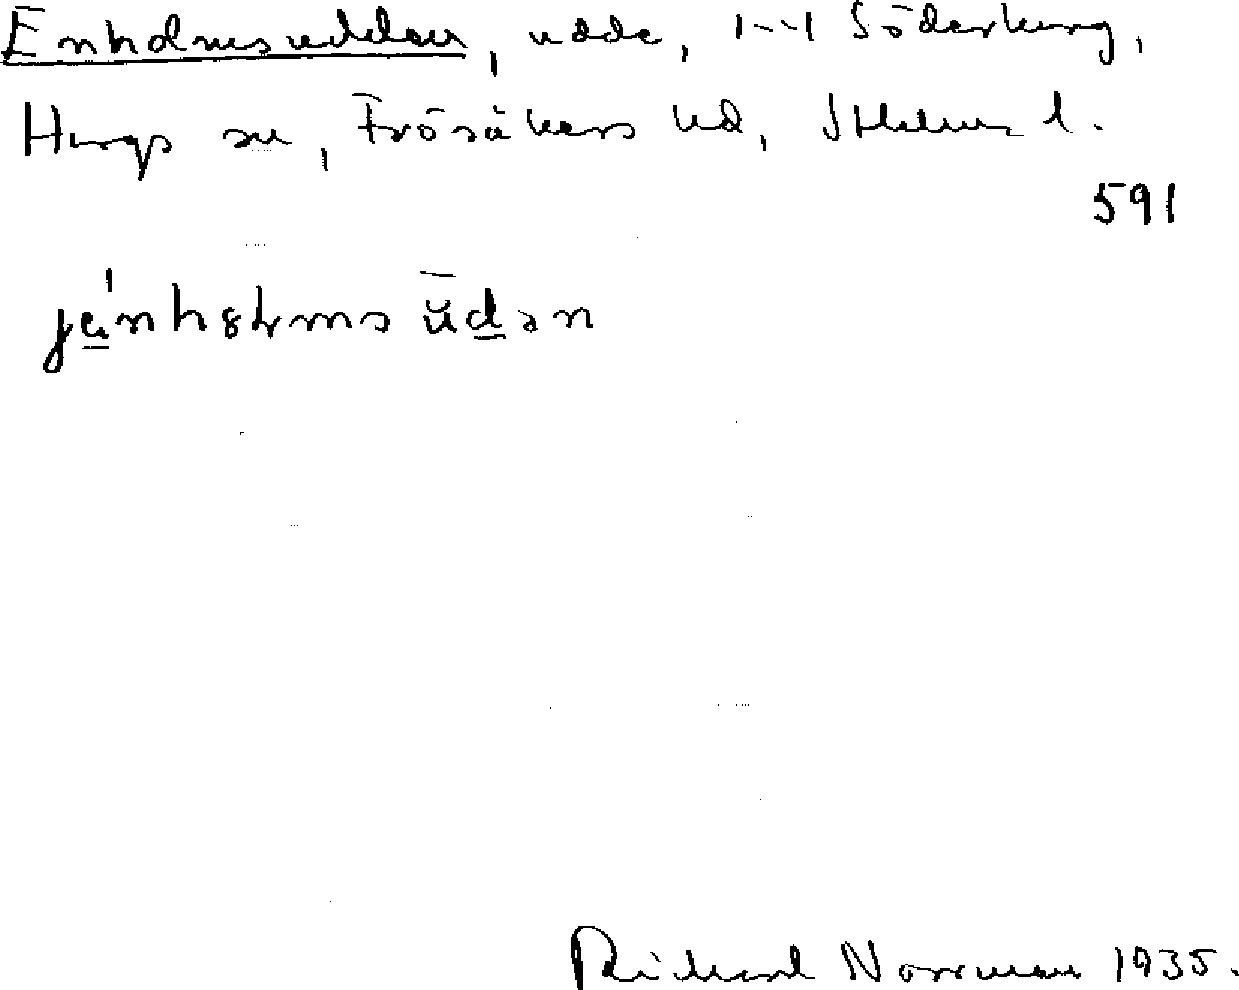 Enholmsudden, udde, 1–4 Söderbyng,
Hargs sn, Frösåkers hd, Sthlms l.
591
jänhɷlmsŭdən
Richard Norrman 1935.